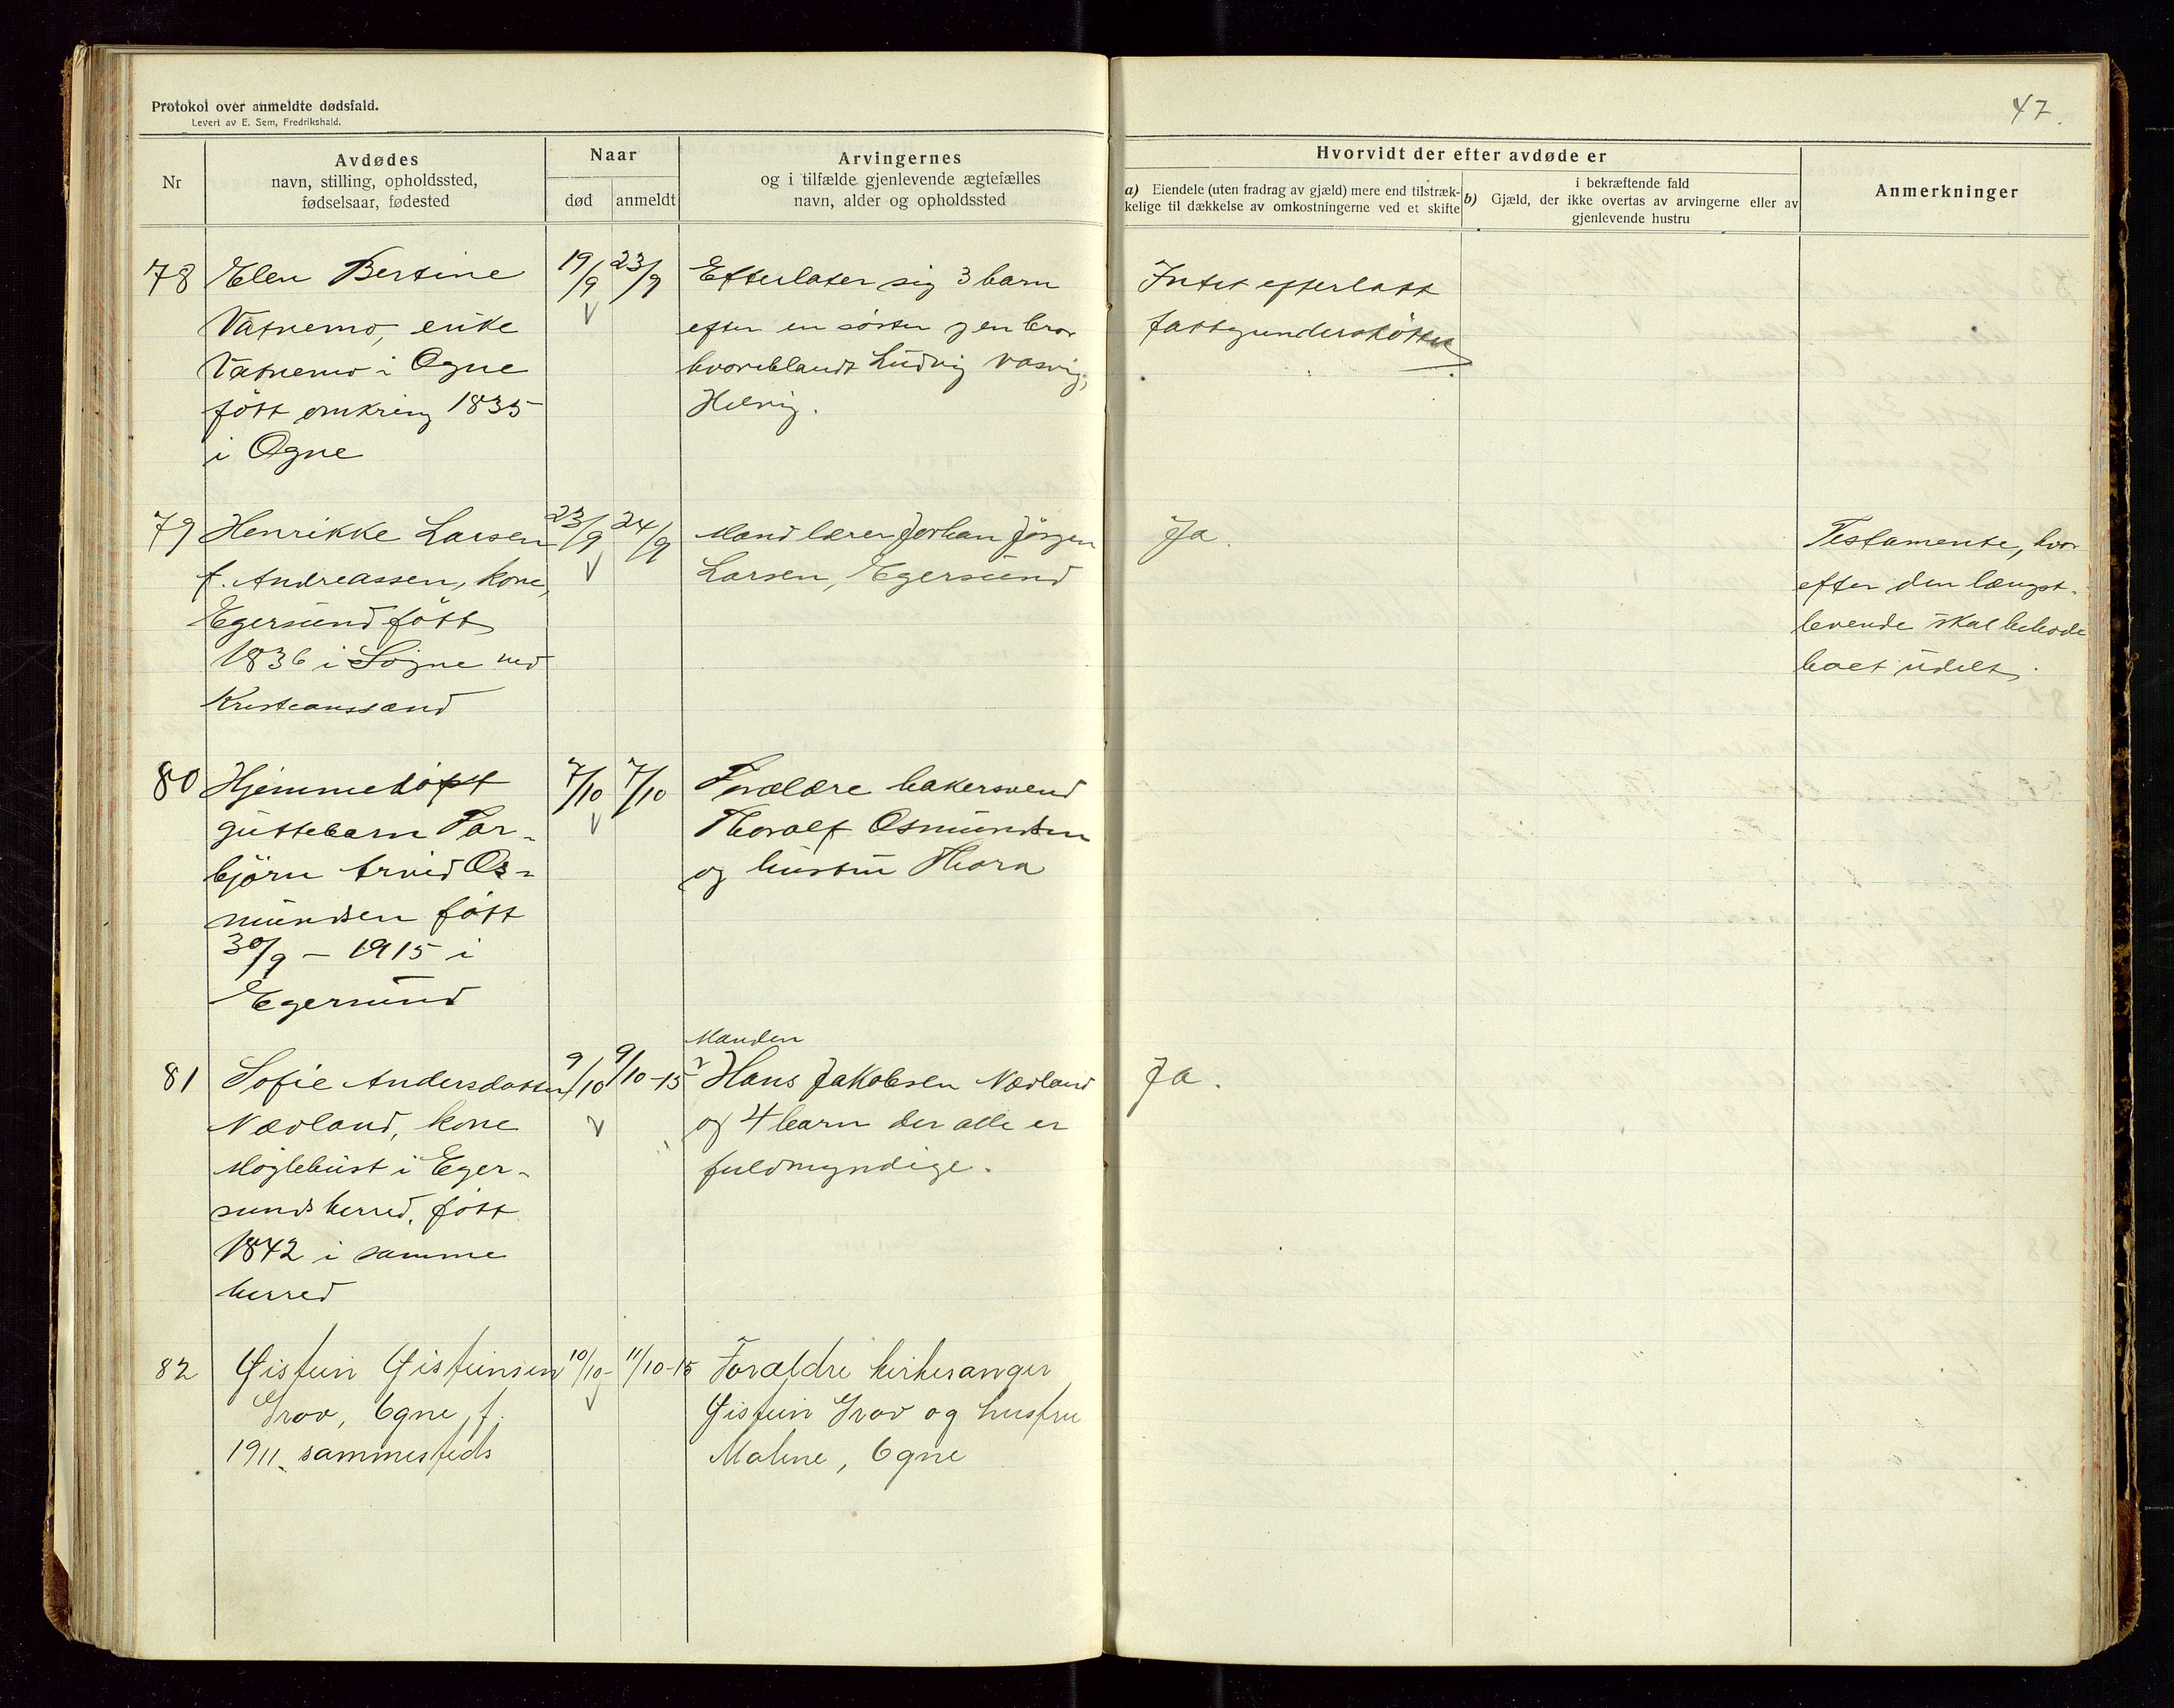 Protokol over anmeldte dødsfald.
Levert av E. Sem, Fredrikshald.
47.
Nr
Avdødes
navn, stilling, opholdssted,
fødselsaar, fødested
Naar
død
anmeldt
Arvingernes
og i tilfælde gjenlevende ægtefælles
navn, alder og opholdssted
Hvorvidt der efter avdøde er
a) Eiendele (uten fradrag av gjæld) mere end tilstræk-
kelige til dækkelse av omkostningerne ved et skifte
i bekræftende fald
b) Gjæld, der ikke overtas av arvingerne eller av
gjenlevende hustru
Anmerkninger
78
Elen Bertine
Vatnemo, enke
Vatnemo i Ogne
født omkring 1835
i Ogne
19/9
23/9
Efterlater sig 3 barn
efter en søster og en bror
hvoriblandt Ludvig
Helvig.
Intet efterlatt
fattigunderstøttet
79
Henrikke Larsen
f. Andreassen, kone,
Egersund født
1836 i Søgne ved
Kristianssand
23/9
24/9
Mand lærer Johan Jörgen
Larsen, Egersund
Ja.
Testamente, hvor
efter den længst-
levende skal beholde
boet udelt.
80
Hjemmedöpt
guttebarn Tor-
björn Arvid Os-
mundsen født
30/9 - 1915 i
Egersund
7/10
7/10
Forældre bakersvend
Thoralf Osmundsen
og hustru Thora
81
Sofie Andersdatter
Nævland, kone
Møglebust i Eger-
sunds herred, født
1842 i samme
herred
9/10
9/10-15
Manden
Hans Jakobsen Nævland
og 4 barn der alle er
fuldmyndige.
Ja.
82
Øistein Øisteinsen
Grov, Ogne, f.
1911 sammesteds
10/10-
11/10-15
Forældre kirkesanger
Øistein Grov og hustru
Maline, Ogne